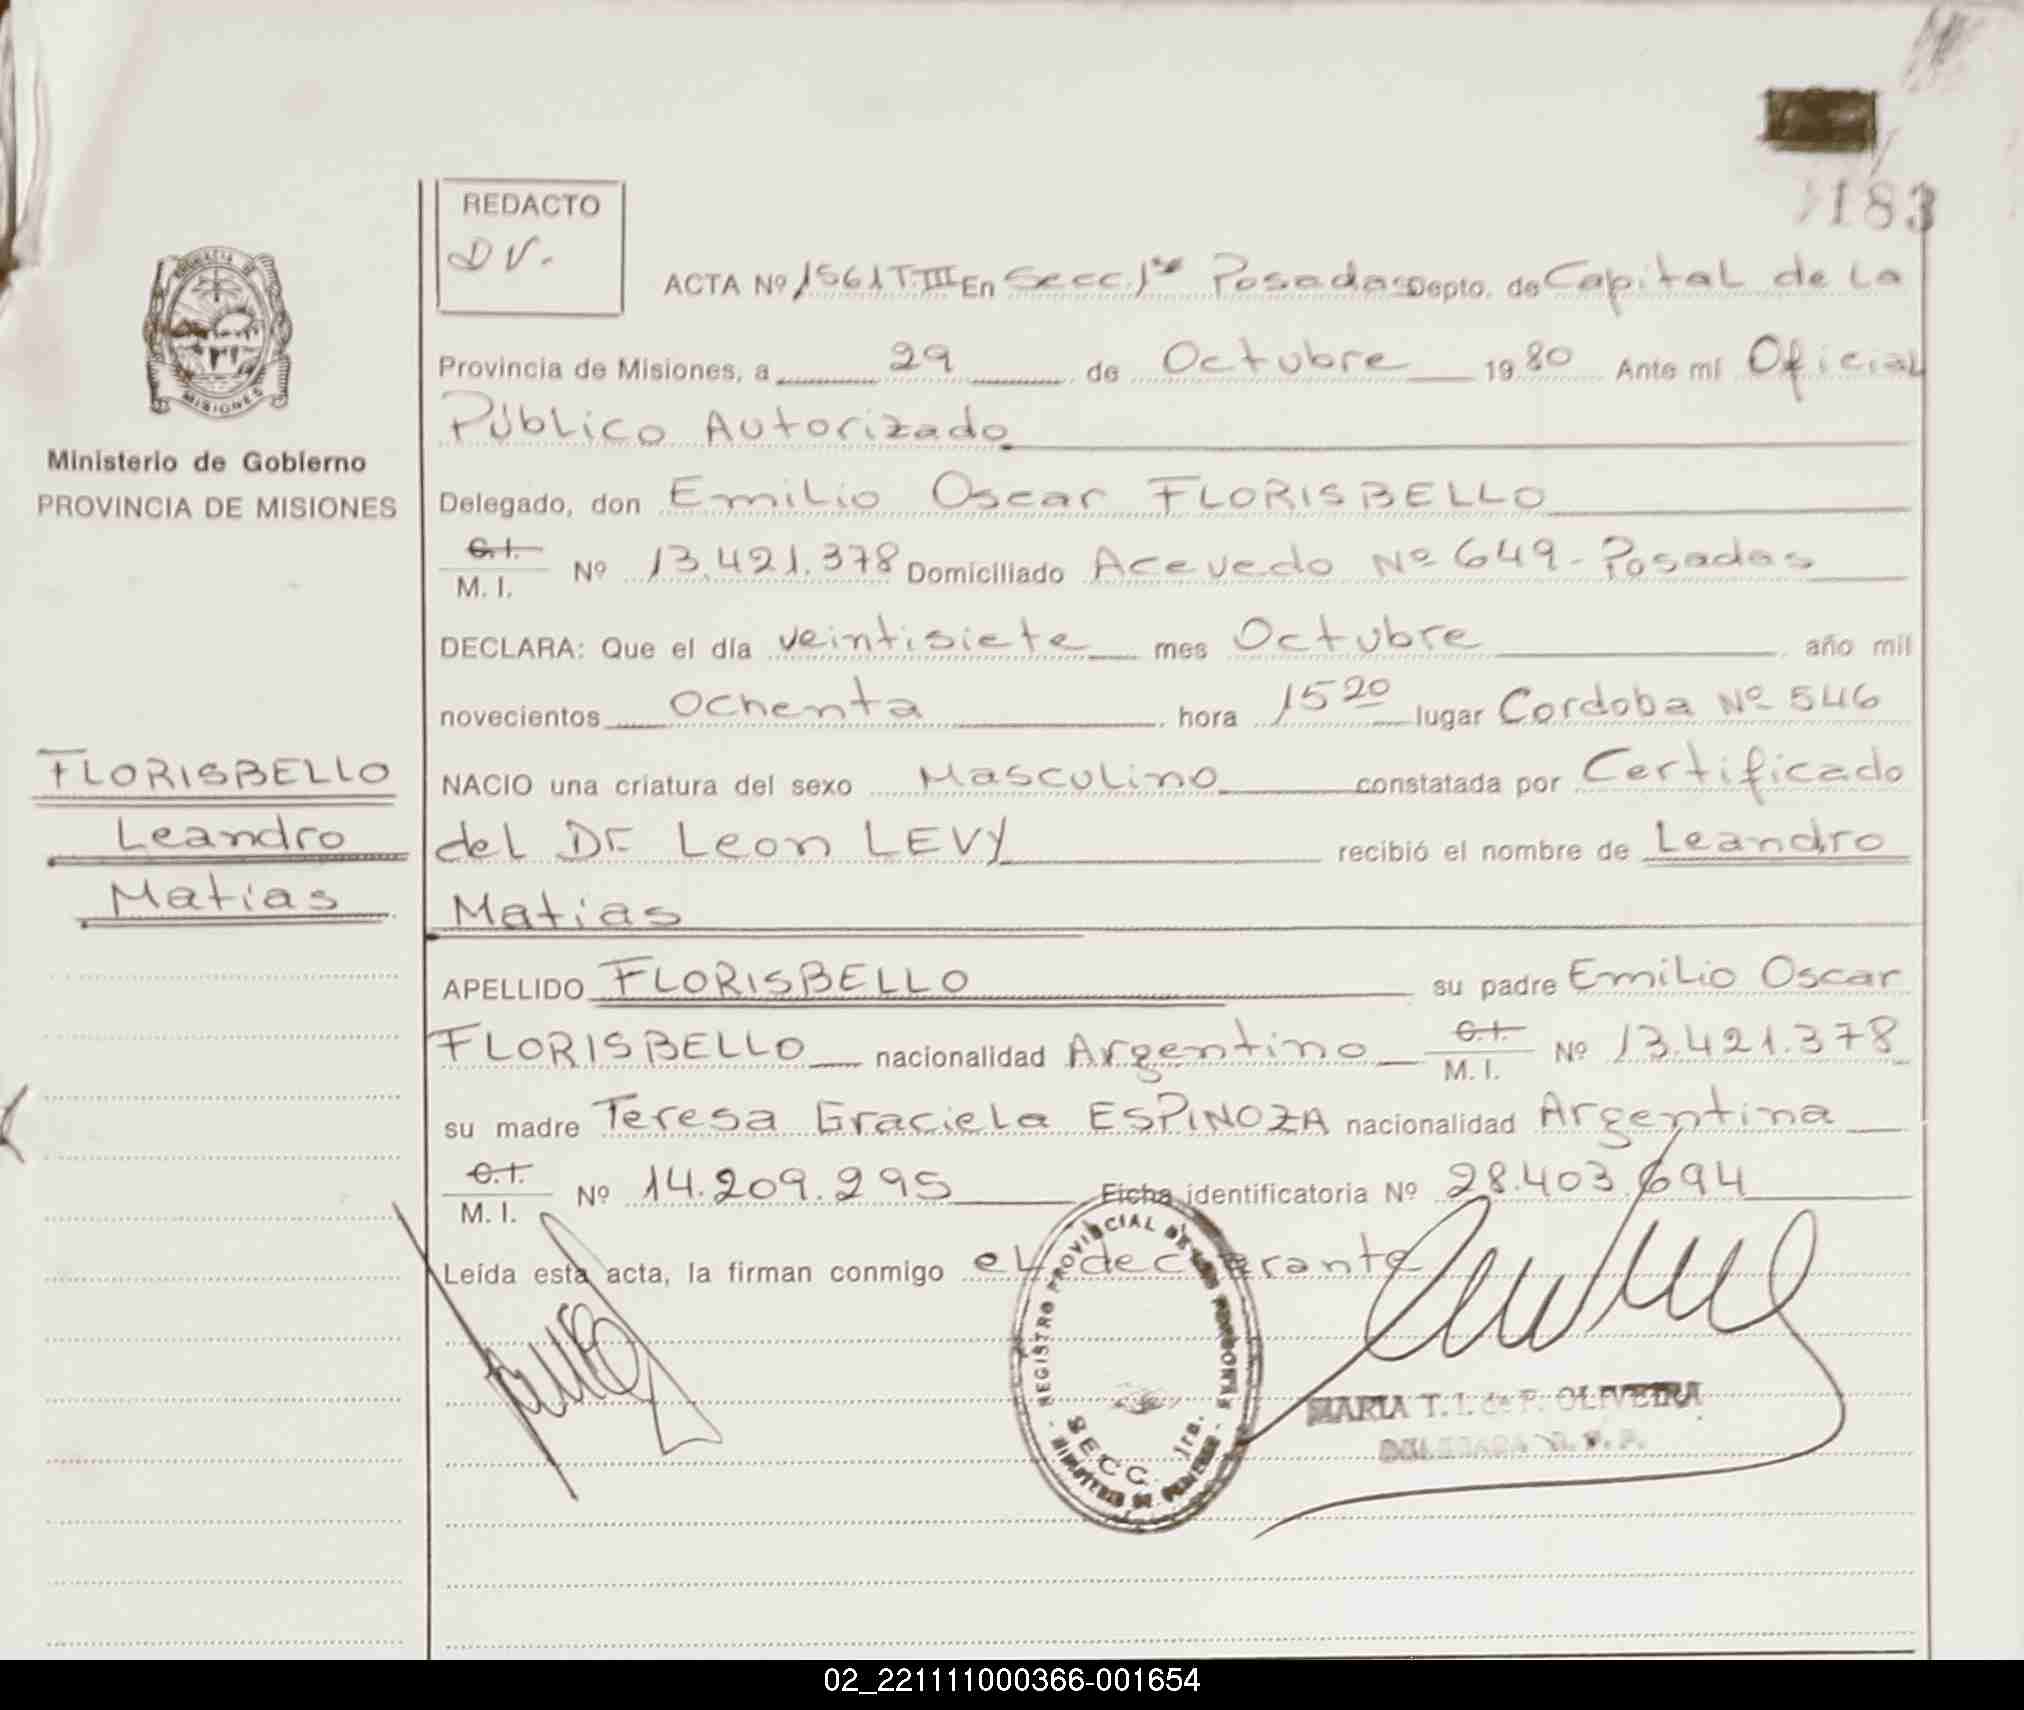 183
REDACTO
DV.
ACTA Nº 1561 T.III En Secc. 1ra Posadas Depto. de Capital de La
Provincia de Misiones, a 29 de Octubre 1980 Ante mí Oficial
Público Autorizado
Delegado, don Emilio Oscar FLORISBELLO
C.I.
M. I. Nº 13.421.378 Domiciliado Acevedo Nº 649 - Posadas
DECLARA: Que el día veintisiete mes Octubre año mil
novecientos ochenta hora 15 20 lugar Cordoba Nº 546
NACIO una criatura del sexo Masculino constatada por Certificado
del Dr. Leon LEVY recibió el nombre de Leandro
Matias
APELLIDO FLORISBELLO su padre Emilio Oscar
FLORISBELLO nacionalidad Argentino C.I. M. I. Nº 13.421.378
su madre Teresa Graciela ESPINOZA nacionalidad Argentina
C.I.
M. I. Nº 14.209.295 Ficha identificatoria Nº 28.403.694
Leída esta acta, la firman conmigo el declarante
PROVINCIA DE
MISIONES
Ministerio de Gobierno
PROVINCIA DE MISIONES
FLORISBELLO
Leandro
Matias
REGISTRO PROVINCIAL DE LAS PERSONAS
SECC. 1ra.
MINISTERIO DE
MARIA T. I. de F. OLIVEIRA
02_221111000366-001654